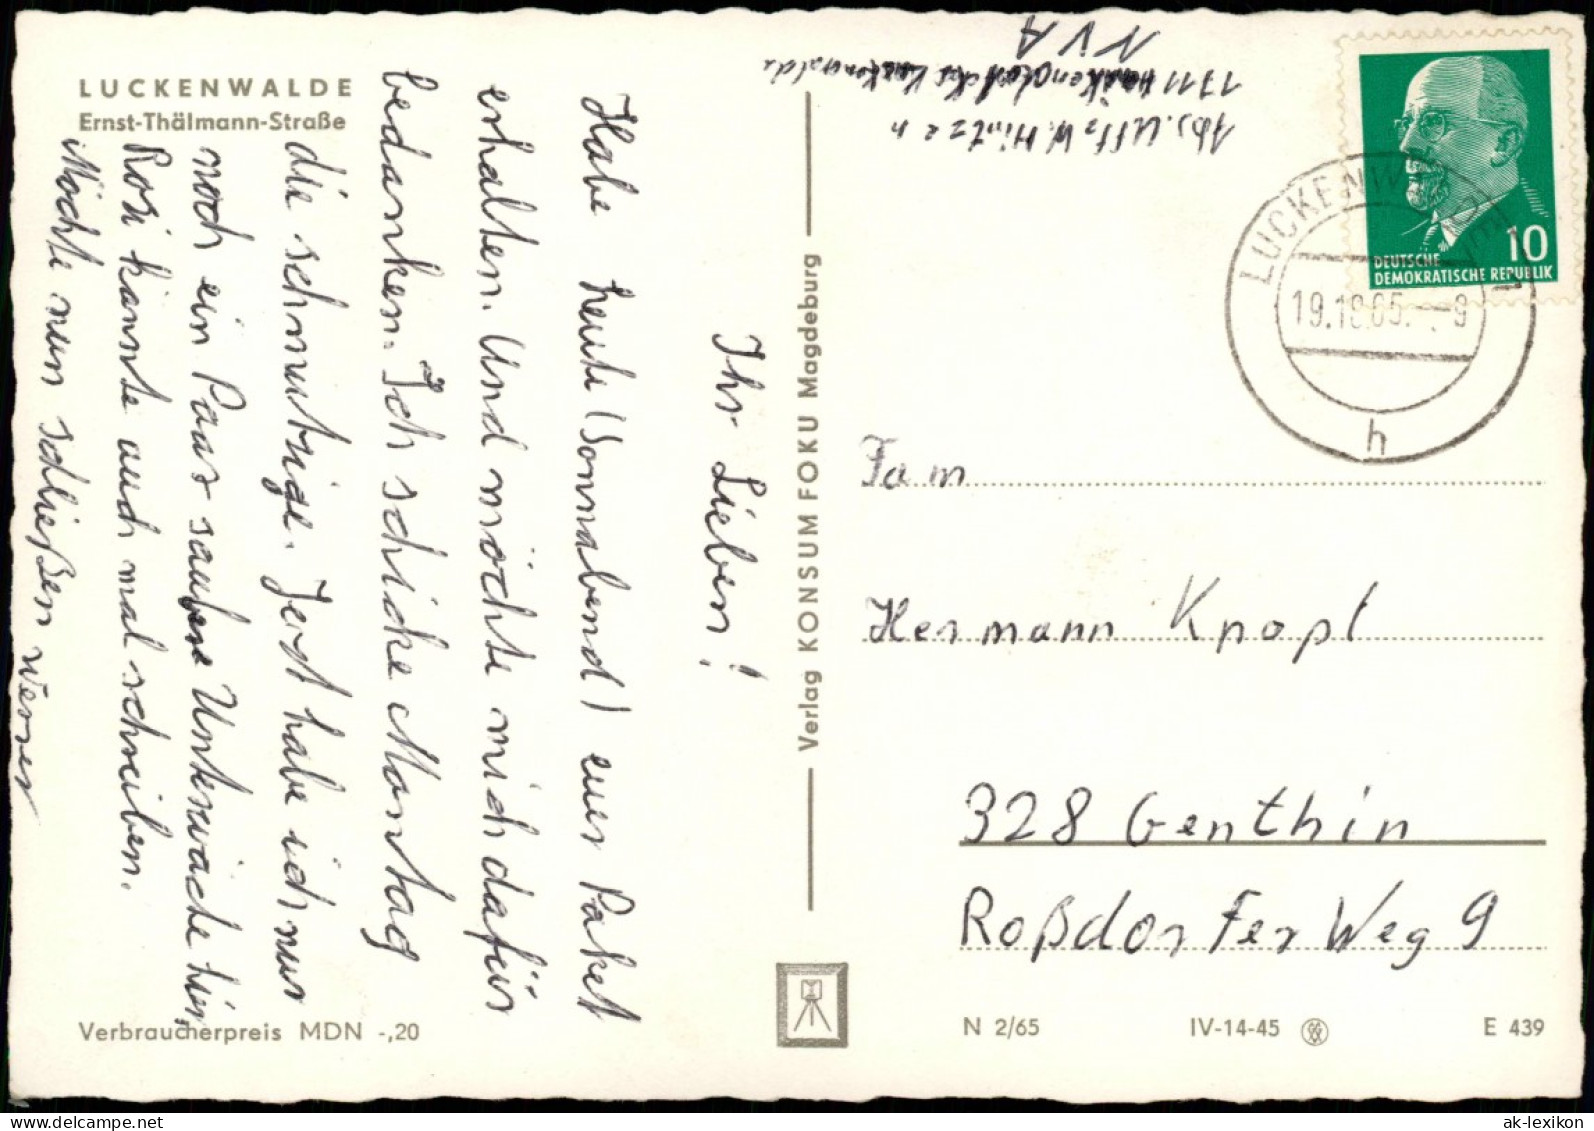 LUCKENWALDE
Ernst-Thälmann-Straße
Ihr Lieben!
Habe heute (Sonnabend) euer Paket
erhalten. Und möchte mich dafür
bedanken. Ich schicke Montag
die schmutzige. Jetzt habe ich nur
noch ein Paar saubere Unterwäche hier,
Rosi kannte auch mal schreiben.
Möchte nun schließen Werner
Verbraucherpreis MDN -,20
Verlag KONSUM FOKU Magdeburg
Abs. Uffz W. Hintzen
1711 Luckenwalde
NVA
10
DEUTSCHE
DEMOKRATISCHE REPUBLIK
LUCKENWALDE 1
h
Fam
Hermann Knopf
328 Genthin
Roßdorfer Weg 9
N 2/65
IV-14-45
E 439
ak-lexikon